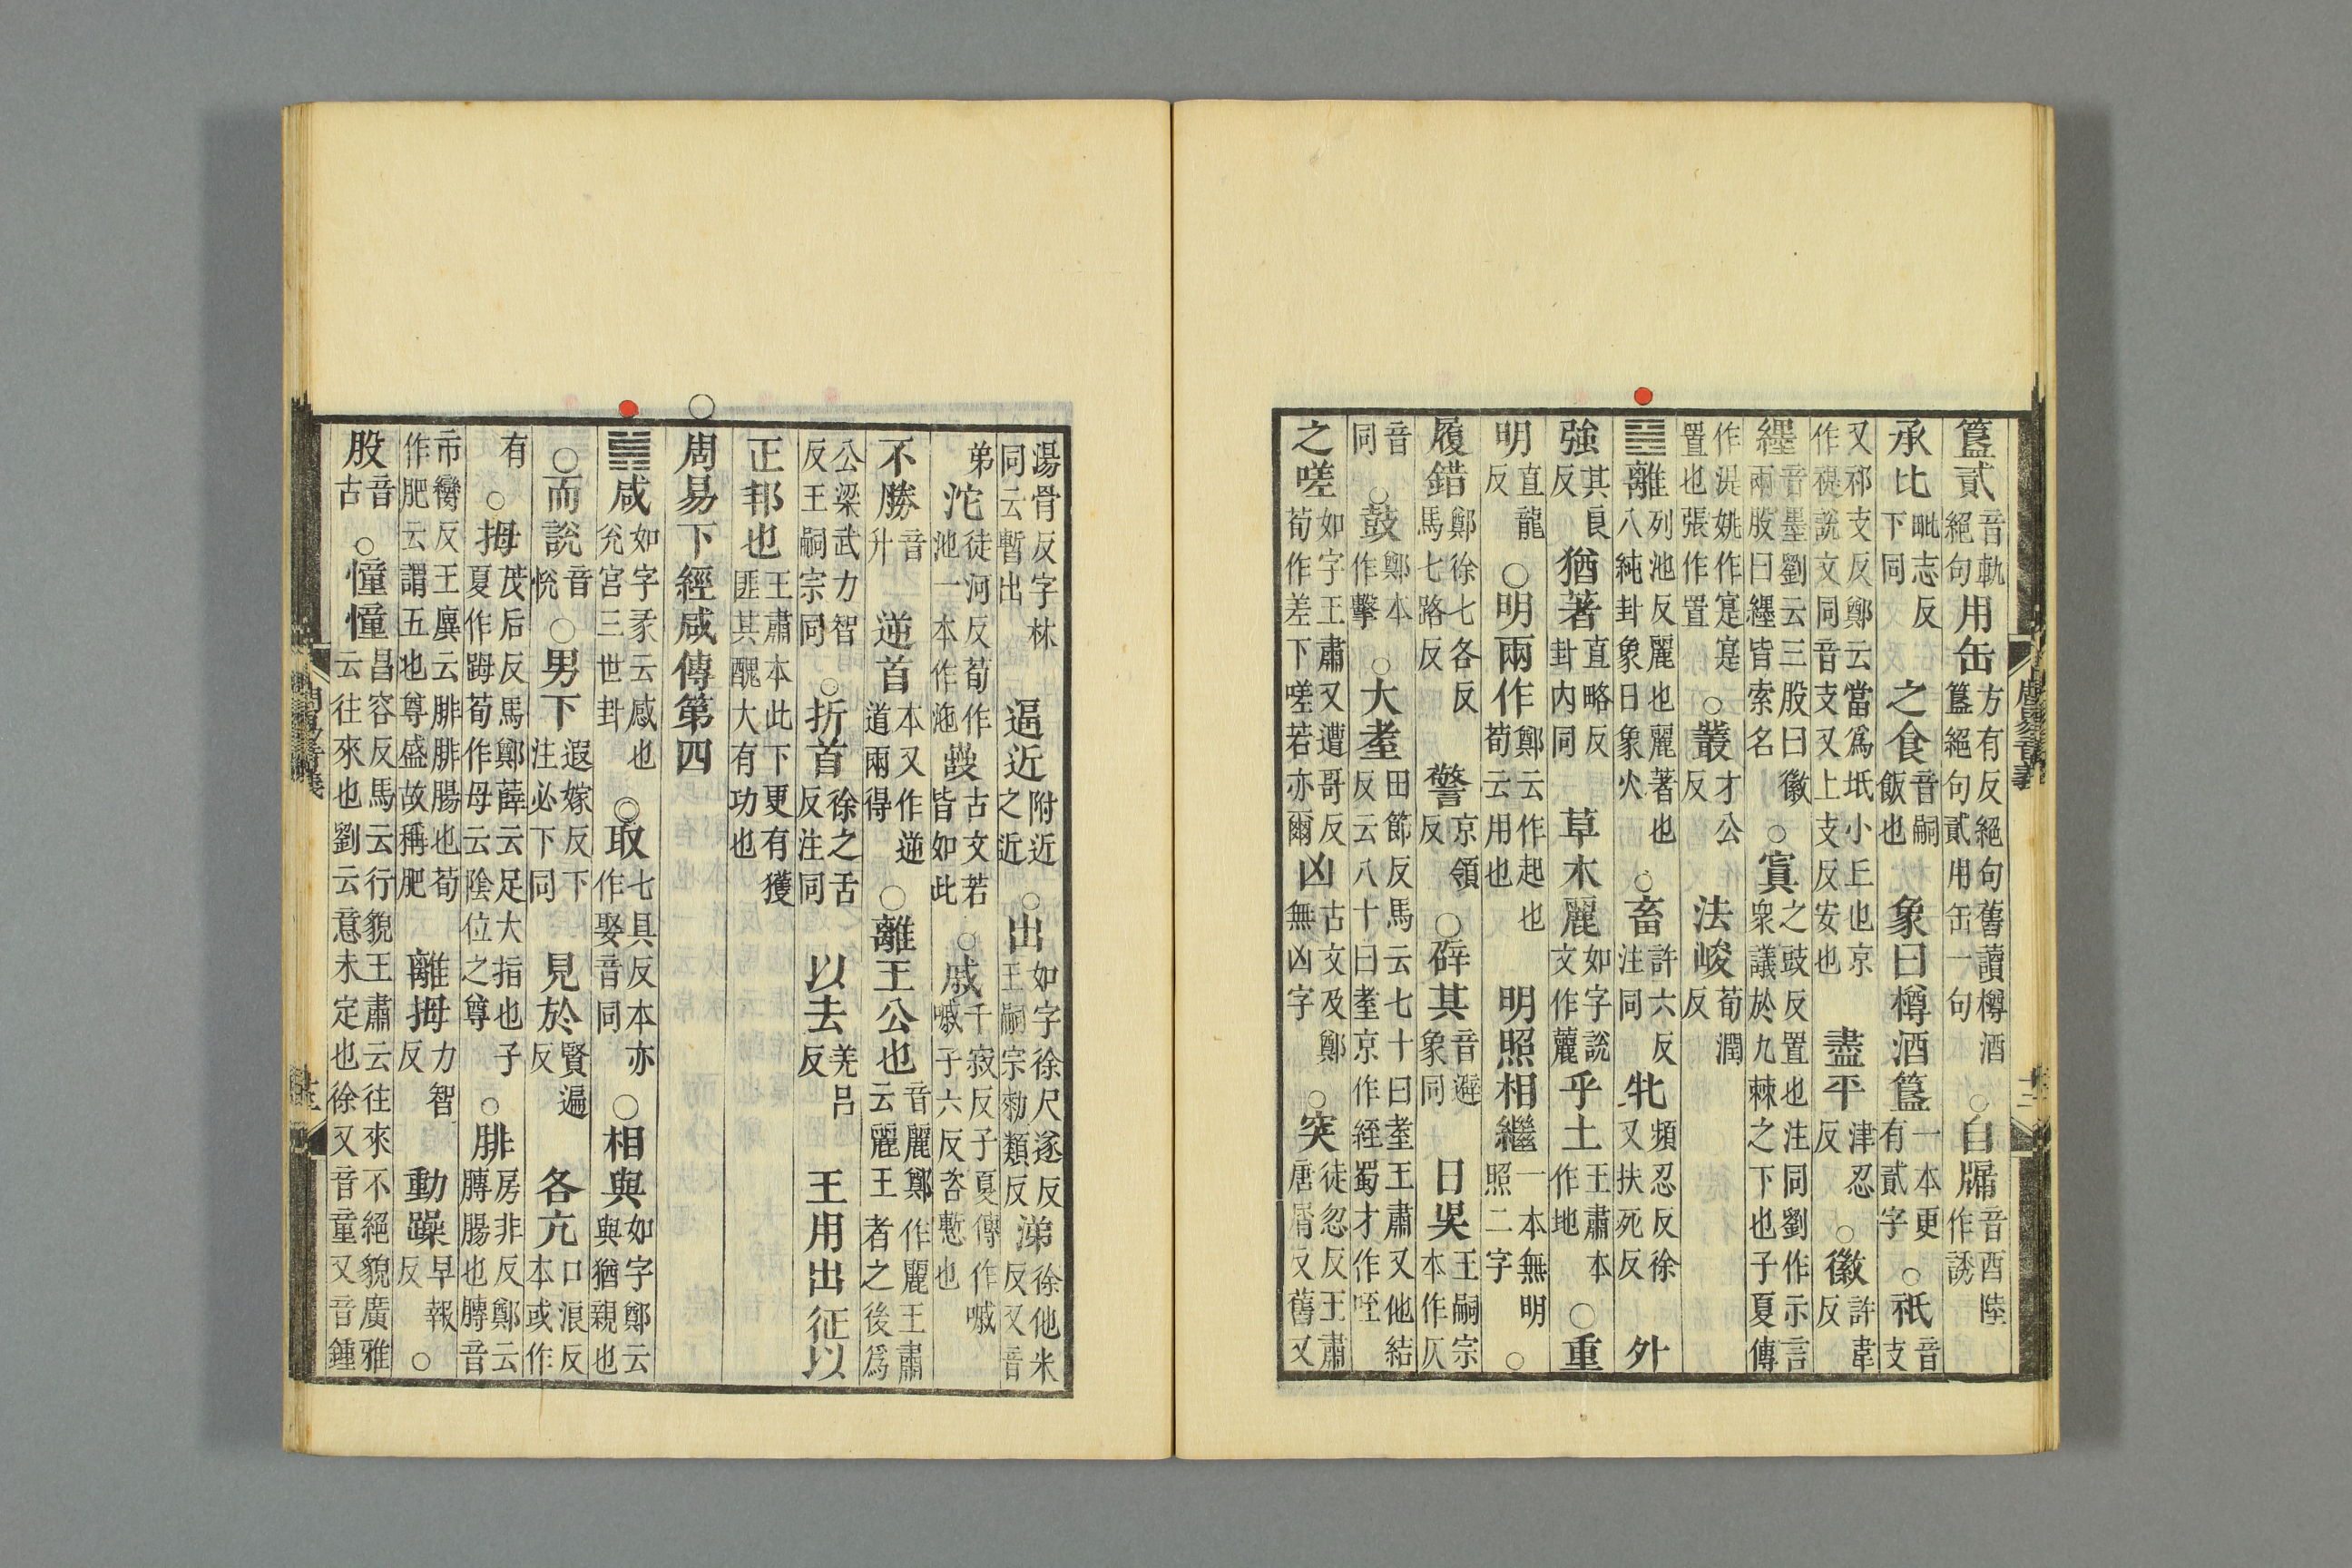 簋貳音軌絕句用缶方有反絕句舊讀樽酒簋絕句貳用缶一句○自牖音酉陸作誘
承比毗志反下同之食音嗣飯也象曰樽酒簋一本更有貳字○祇音支
又祁支反鄭云當爲坻小丘也京作禔說文同音支又上支反安也盡平津忍反○徽許韋反
纆音墨劉云三股曰徽兩股曰纆皆索名○寘之豉反置也注同劉作示言衆議於九棘之下也子夏傳
作湜姚作寔寔置也張作置○叢才公反法峻荀潤反
離列池反麗也麗著也八純卦象日象火○畜許六反注同牝頻忍反徐又扶死反外
強其良反猶著直略反卦內同草木麗如字說文作䕻乎土王肅本作地○重
明直龍反○明兩作鄭云作起也荀云用也明照相繼一本無明照二字○
履錯鄭徐七各反馬七路反警京領反○辟其音避象同日昃王嗣宗本作仄
音同○鼓鄭本作擊○大耋田節反馬云七十曰耋王肅又他結反云八十曰耋京作絰蜀才作咥
之嗟如字王肅又遭哥反荀作差下嗟若亦爾凶古文及鄭無凶字○突徒忽反王肅唐屑反舊又
湯骨反字林同云暫出逼近附近之近○出如字徐尺遂反王嗣宗勑類反涕徐他米反又音
弟沱徒河反荀作池一本作沲𢧵古文若皆如此○戚千寂反子夏傳作嘁嘁子六反咨慙也
不勝音升逆首本又作逆道兩得○離王公也音麗鄭作麗王肅云麗王者之後爲
公梁武力智反王嗣宗同○折首徐之舌反注同以去羌呂反王用出征以
正邦也王肅本此下更有獲匪其醜大有功也
○周易下經咸傳第四
咸如字彖云感也兊宮三世卦◎取七具反本亦作娶音同○相與如字鄭云與猶親也
○而說音悅○男下遐嫁反下注必下同見於賢遍反各亢口浪反本或作
有○拇茂后反馬鄭薛云足大指也子夏作䟦荀作母云陰位之尊○腓房非反鄭云膞腸也膞音
市臠反王廙云腓腓腸也荀作肥云謂五也尊盛故稱肥離拇力智反動躁早報反○
股音古○憧憧昌容反馬云行貌王肅云往來不絕貌廣雅云往來也劉云意未定也徐又音童又音鍾